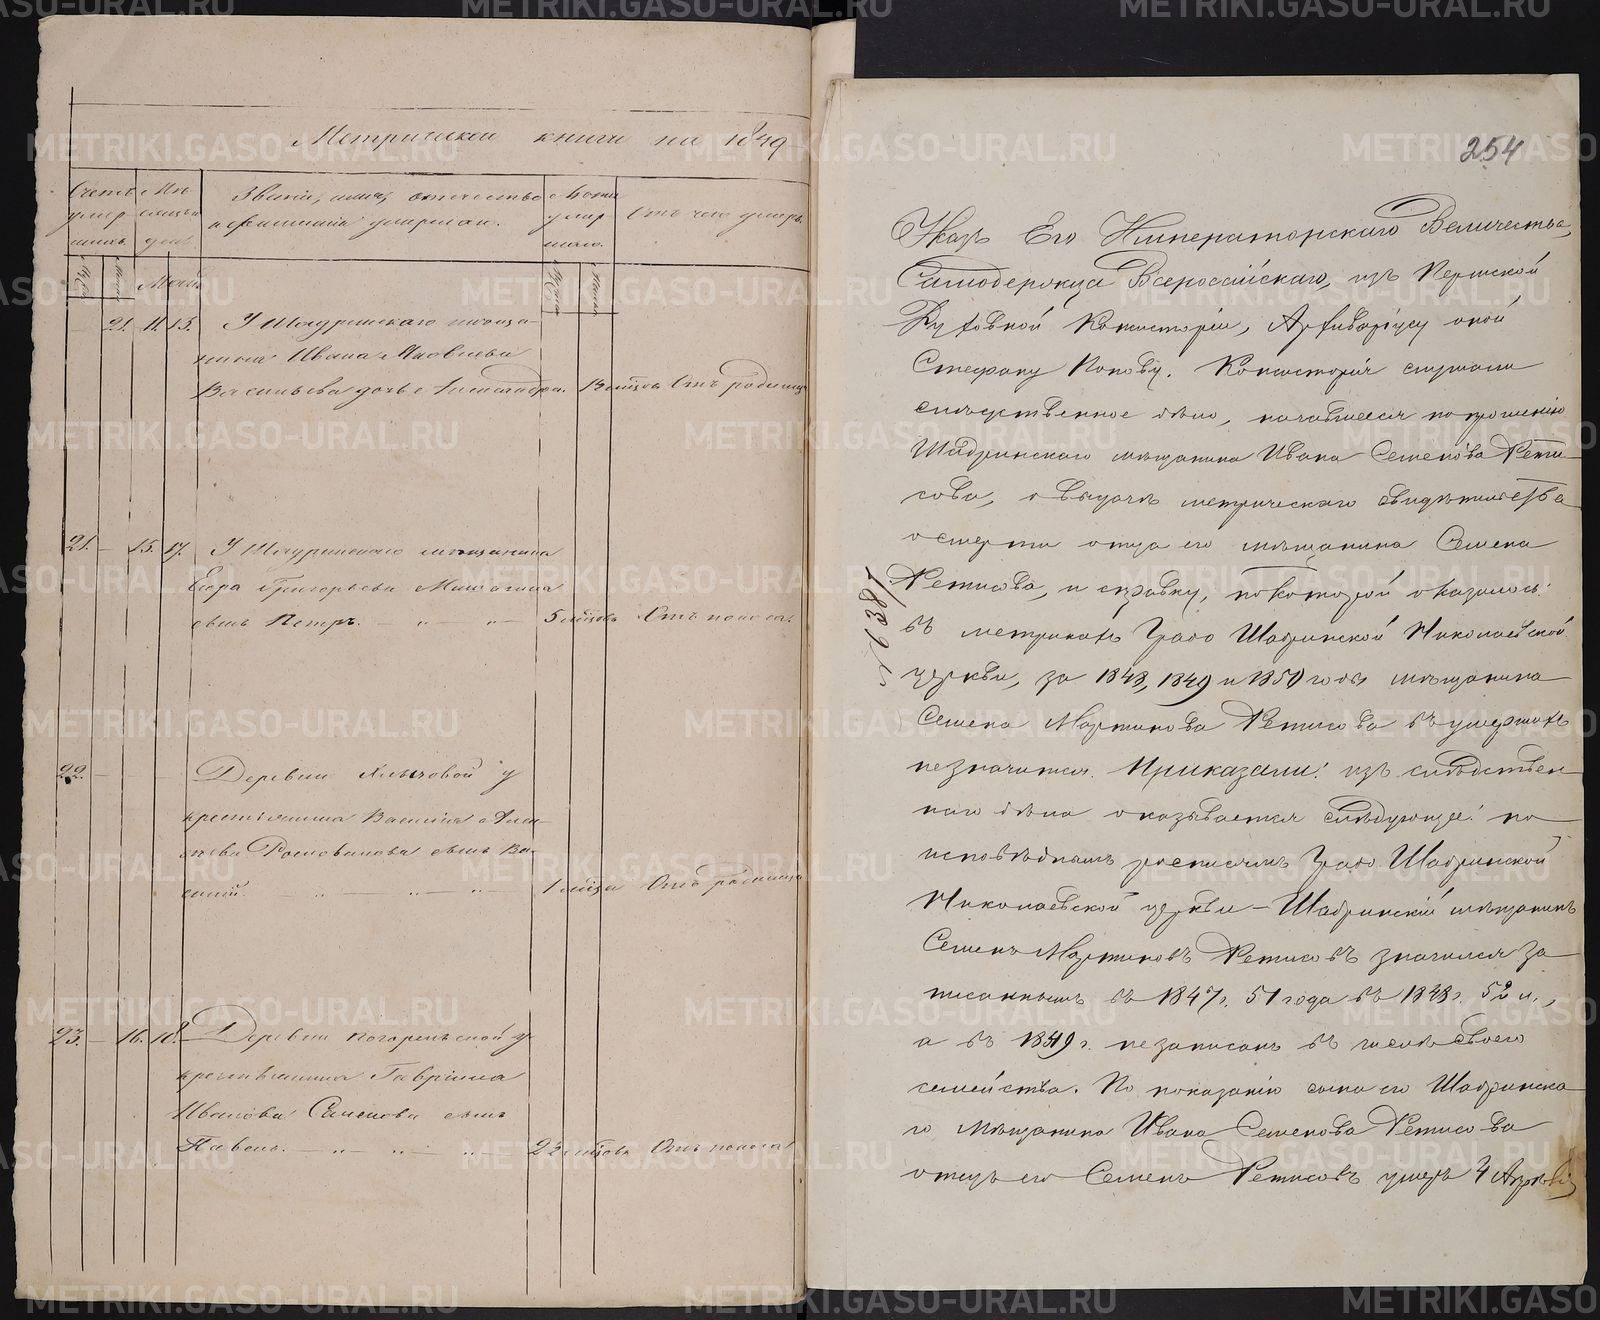 Метрической книги на 1849
Счетъ умершихъ.
Мѣсяцъ и день
Званіе, имя, отчество и фамилія умершаго.
Лѣта умершаго.
Отъ чего умеръ.
Май
21. 11. 13. У Шадринскаго мѣща-
нина Ивана Яковлева
Васильева дочь Александра. В мѣсяц. Отъ родимца
21. — 15. 17. У Шадринскаго мѣщанина
Егора Григорьева
сынъ Петръ. — „ — „ — 5 мѣсяцовъ Отъ поноса.
22. — Деревни у
крестьянина Василія Алек-
сѣева сынъ Ва-
силій. — „ — „ — „ — 1 мѣсяца Отъ родимца
23. — 16. 18. Деревни у
крестьянина Гавріила
Иванова Семенова сынъ
Павелъ. — „ — „ — „ — 2 мѣсяцовъ Отъ поноса
254
Указъ Его Императорскаго Величества,
Самодержца Всероссійскаго, изъ Пермской
Духовной Консисторіи, Архиваріусу оной
Стефану Попову. Консисторія слушали
слѣдственное дѣло, начавшееся по прошенію
Шадринскаго мѣщанина Ивана Семенова Ретни-
сова, о выдачѣ метрическаго свидѣтельства
о смерти отца его мѣщанина Семена
и справку, по которой оказалось:
въ метрикахъ Градо Шадринской Николаевской
церкви, за 1848, 1849 и 1850 годы мѣщанина
Семена Мартинова въ умершихъ
не значится. Приказали: изъ слѣдствен-
наго дѣла оказывается слѣдующее: по
исповѣднымъ росписямъ Градо Шадринской
Николаевской церкви – Шадринскій мѣщанинъ
Семенъ Мартиновъ значился за-
писаннымъ въ 1847 г. 51 года въ 1848 г. 52 л.,
а въ 1849 г. не записанъ въ числѣ своего
семейства. По показанію сына его Шадринска-
го мѣщанина Ивана Семенова
отецъ его Семенъ умеръ 4 Апрѣля
METRIKI.GASO-URAL.RU